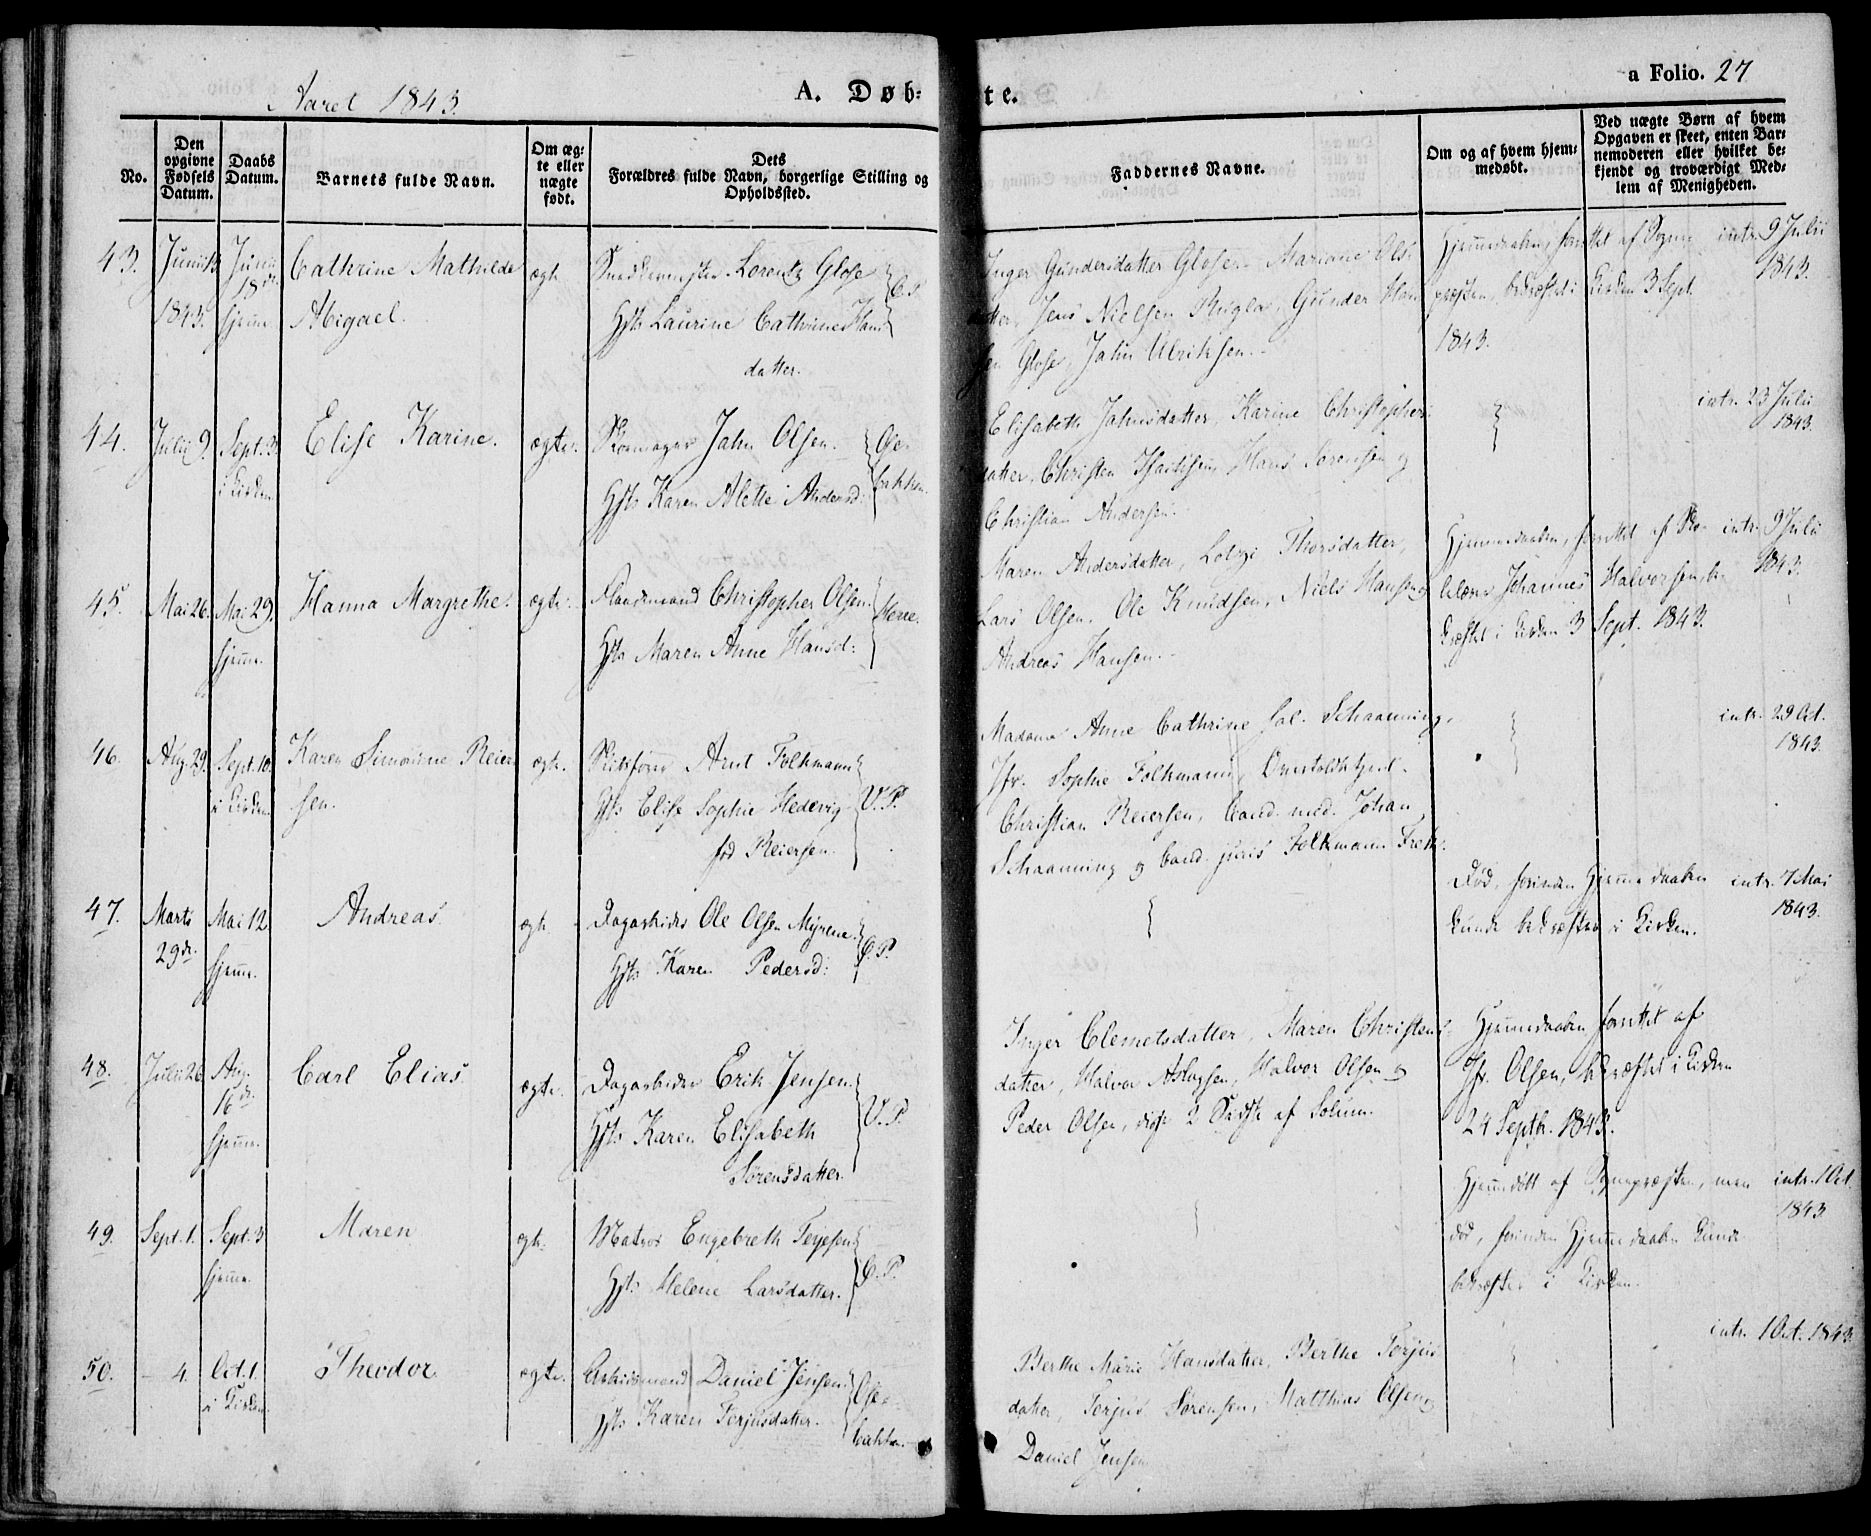 Aaret 1843.
A. Døb-
te.
a Folio. 27
No.
Den
opgivne
Fødsels
Datum.
Daabs
Datum.
Barnets fulde Navn.
Om æg-
te eller
nægte
født.
Dets
Forældres fulde Navn, borgerlige Stilling og
Opholdssted.
Faddernes Navne.
Om og af hvem hjem-
medøbt.
Ved nægte Børn af hvem
Opgaven er skeet, enten Bar-
nemoderen eller hvilket be-
kjendt og troværdigt Med-
lem af Menigheden.
43.
Junii 13
1843.
Junii
18de
hjem.
Cathrine Mathilde
Abigael.
ægte
Snedkermester Lorentz Glose
Hst. Laurine Cathrine Hans
datter.
Inger Gundersdatter Glosen. Mariane Ols-
datter, Jens Nielsen Rugla, Gunder Han
sen Glose, Jahn Ulriksen.
Hjemmedaaben forrettet af Sogne
præsten, bekræftet i Kirken 3 Sept.
1843.
intr. 9 Julii
1843.
44.
Julii 9.
Sept. 3
i Kirken
Elise Karine.
ægte.
Skomager Jahn Olsen.
Hst. Karen Alette Andersd:
Ose-
bakken.
Elisabeth Jahnsdatter, Karine Christophers-
datter, Christen Isachsen, Hans Sørensen og
Christian Andersen.
intr. 23 Julii
1843.
45.
Mai 26.
Mai 29.
hjem.
Hanna Margrethe.
ægte.
Christopher Olsen.
Hst. Maren Anne Hansd:
Herre.
Maren Andersdatter, Thorsdatter,
Lars Olsen, Ole Knudsen, Niels Hansen og
Andreas Hansen.
Hjemmedaaben, forrettet af Sko-
lelærer Johannes Halvorsen, be-
kræftet i Kirken 3 Sept. 1843.
intr. 9 Julii
1843.
46.
Aug. 29.
Sept. 10.
i Kirken
Karen Simonine Reier
sen.
ægte.
Skibsfører Arnt Folkmann
Hst. Elise Sophie Hedevig
fød Reiersen.
V.P.
Madame Anne Cathrine Sal. Schaanning,
Jfr. Sophie Folkmann,
Christian Reiersen, Cand. med. Johan
Schaanning og Cand. juris Folkmann
intr. 29 Oct.
1843.
47.
Marts
29de.
Mai 12
hjem.
Andreas.
ægte
Dagarbeider Ole Olsen Myrene.
Hst. Karen Pedersd:
Ø.P.
Død, forinden Hjemmedaaben
kunde bekræftes i Kirken.
intr. 7 Mai
1843.
48.
Julii 26
Aug.
16de.
hjem.
Carl Elias
ægte.
Dagarbeider Erik Jensen.
Hst. Karen Elisabeth
Sørensdatter.
V.P.
Inger Clemetsdatter, Maren Christens-
datter, Halvor Aslagsen, Halvor Olsen og
Peder Olsen, disse 2 Sidste af Solum.
Hjemmedaaben forrettet af
Jfr. Olsen, bekræftet i Kirken
24 Septbr. 1843.
49.
Sept. 1.
Sept. 3
hjem.
Maren
ægte.
Matros Engebreth Jeppesen
Hst. Helene Larsdatter.
Ø.P.
Hjemmedøbt af Sognepræsten, men
død, forinden Hjemmedaaben kunde
bekræftes i Kirken.
intr. 1 Oct.
1843.
50.
4.
Oct. 1.
i Kirken
Theodor
ægte.
Arbeidsmand Daniel Jensen
Hst. Karen Terjusdatter.
Ose-
bakken.
Berthe Marie Hansdatter, Berthe Terjus-
datter, Terjus Sørensen, Matthias Olsen og
Daniel Jensen
intr. 1 Oct. 1843.